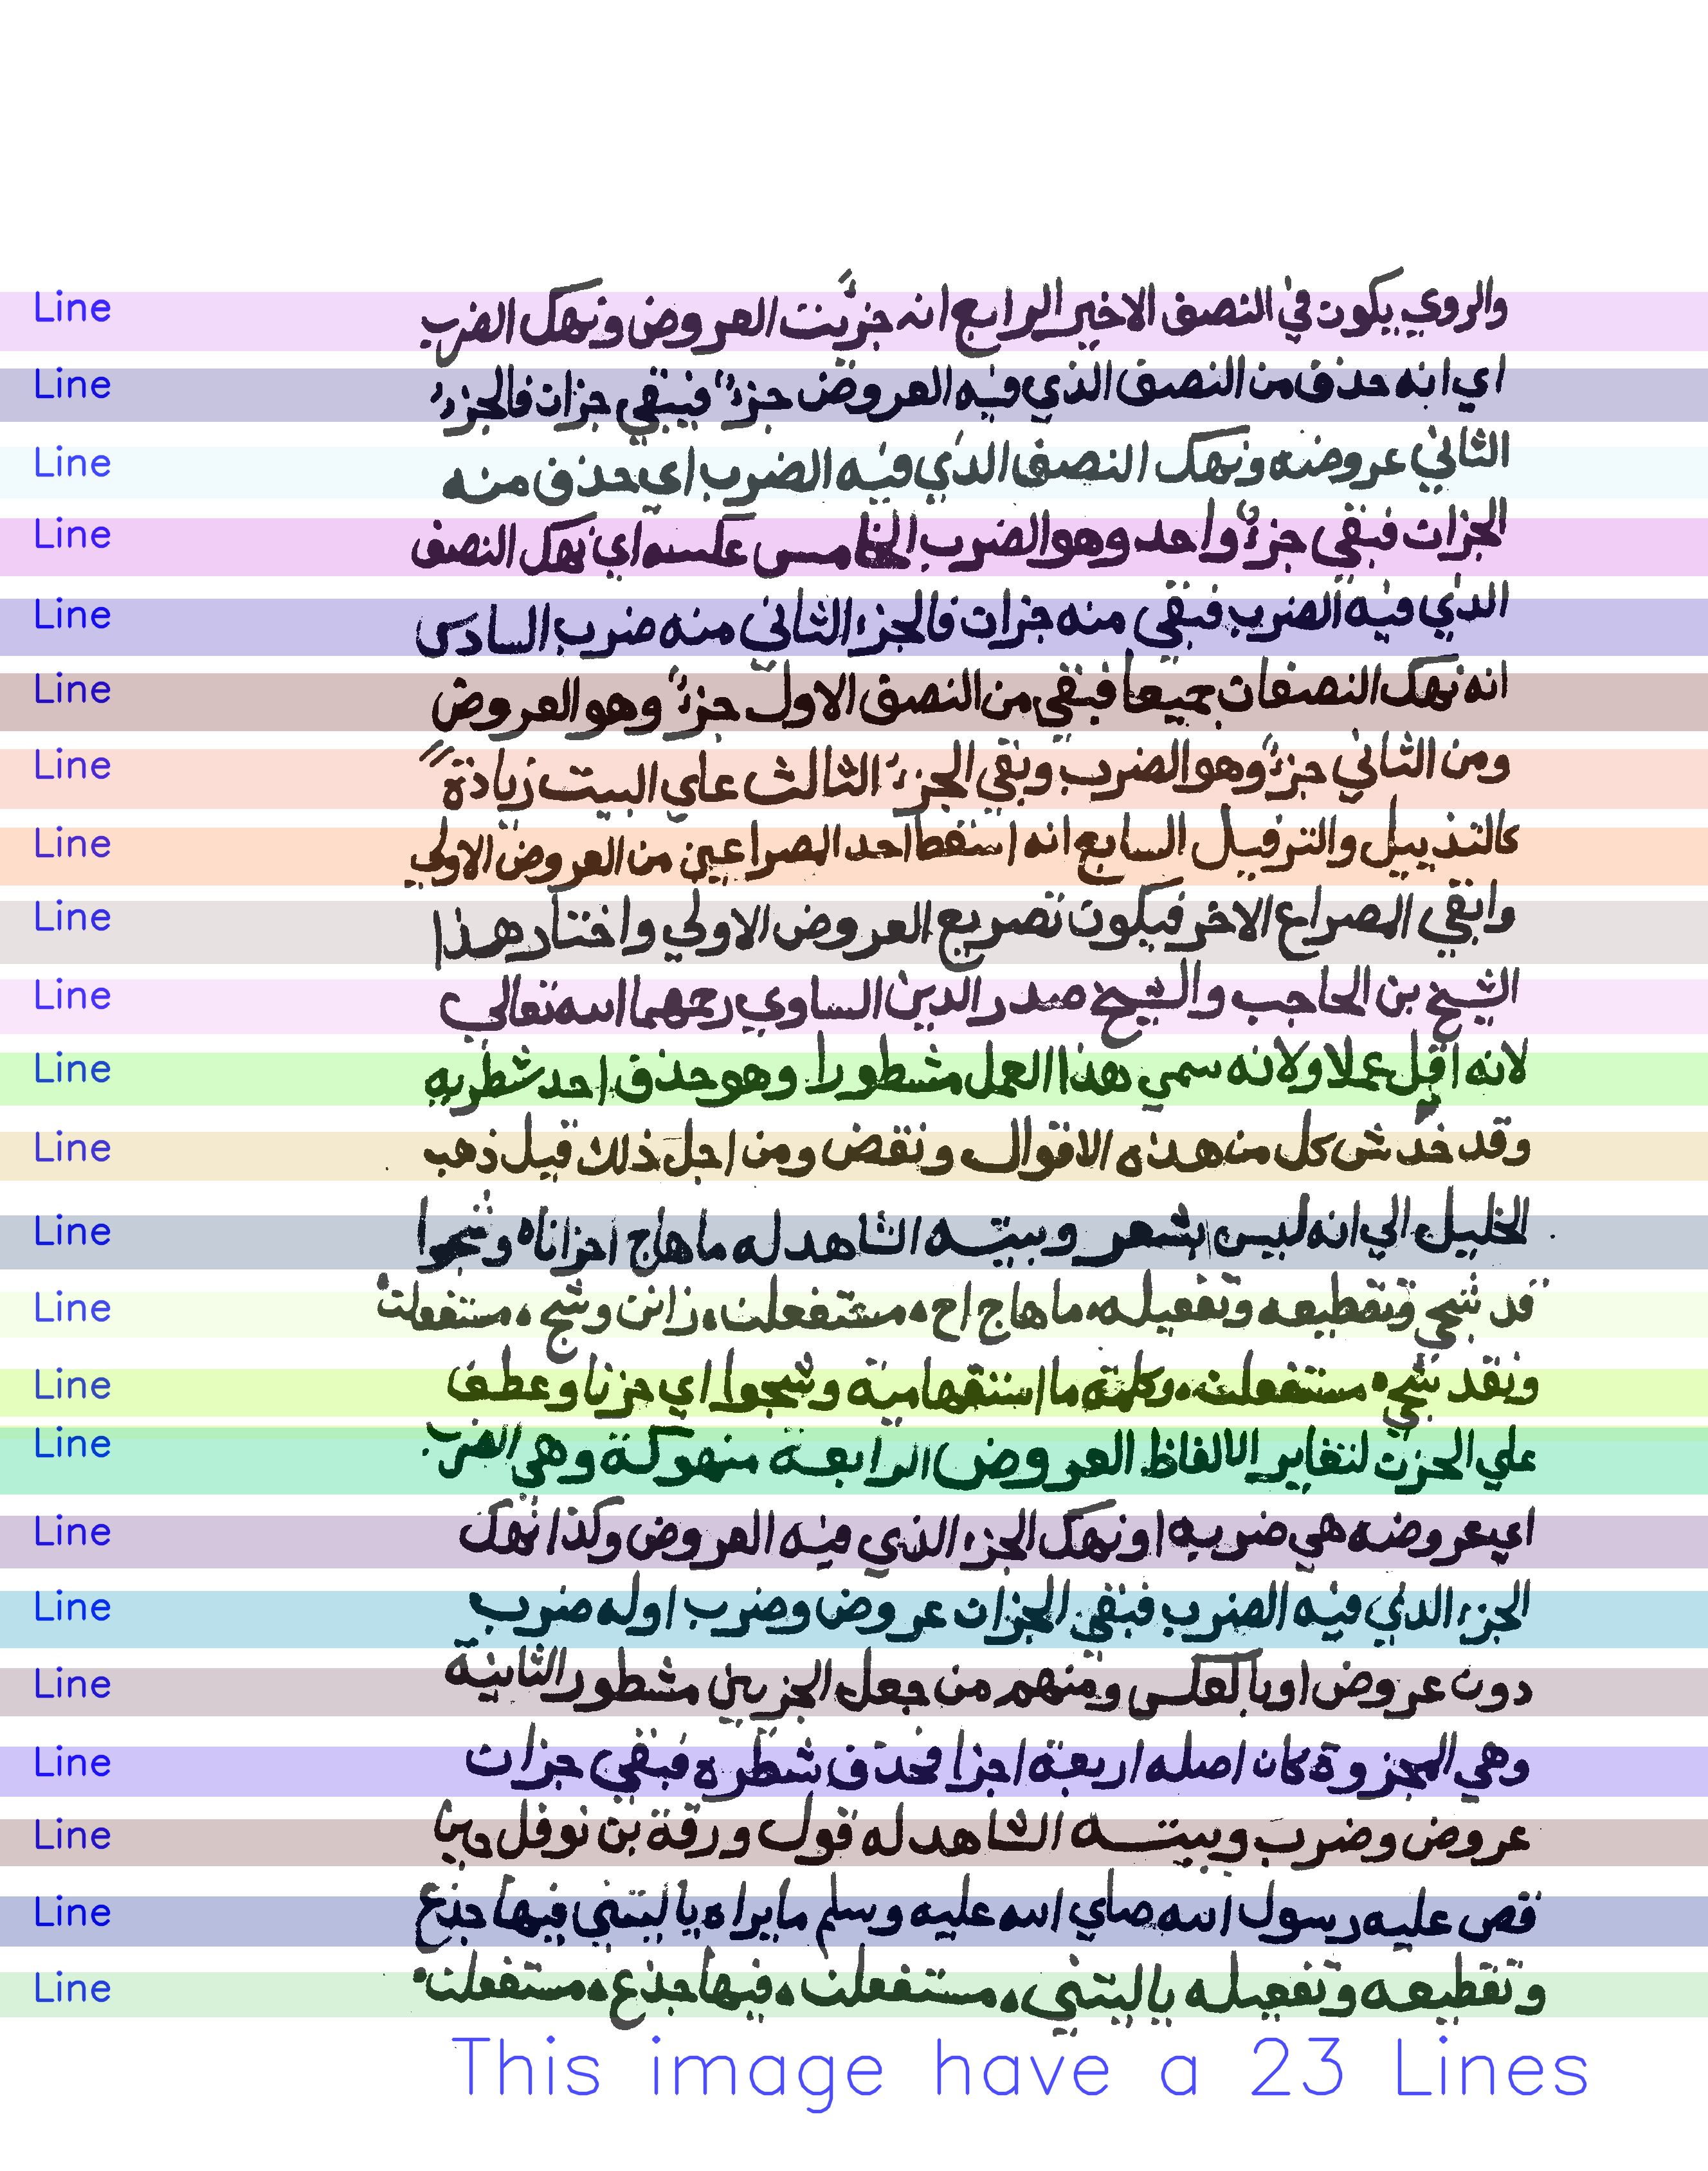 Line والروي يكون في النصف الاخير الرابع انه جزئت العروض ونهك الضرب
Line اي انه حذف من النصف الذي فيه العروض جزء فيبقي جزان فالجزء
Line الثاني عروضه ونهك النصف الذي فيه الضرب اي حذف منه
Line الجزان فبقى جزء واحد وهو الضرب الخامس عكسه اي نهك النصف
Line الذي فيه الضرب فبقى منه جزان فالجزء الثانى منه ضرب السادس
Line انه نهك النصفان جميعا فبقي من النصف الاول جزء وهو العروض
Line ومن الثاني جزء وهو الضرب وبقي الجزء الثالث علي البيت زيادة
Line كالتذييل والترفيل السابع انه اسقط احد المصراعين من العروض الاولي
Line وابقي المصراع الاخر فيكون تصريع العروض الاولي واختار هذا
Line الشيخ بن الحاجب والشيخ صدر الدين الساوي رحمهما الله تعالي
Line لانه اقل عملا ولانه سمي هذا العمل مشطورا وهو حذف احد شطريه
Line وقد خدش كل من هذه الاقوال ونقض ومن اجل ذلك قيل ذهب
Line الخليل الي انه ليس بشعر وبيته الشاهد له ما هاج احزانا وشجوا
Line قد شجي وتقطيعه وتفعيله ما هاج اح مستفعلن زانن وشج مستفعلن
Line ونقد شجي مستفعلن وكلمة ما استفهامية وشجوا اي حزنا وعطف
Line علي الحزن لتغاير الالفاظ العروض الرابعة منهوكة وهي الضرب
Line اي عروضه هي ضربه او نهك الجزء الذي فيه العروض وكذا نهك
Line الجزء الذي فيه الضرب فبقي الجزان عروض وضرب اوله ضرب
Line دون عروض او بالعكس ومنهم من جعل الجزءين مشطور الثانية
Line وهي المجزوة كان اصله اربعة اجزا فحذف شطره فبقي جزان
Line عروض وضرب وبيته الشاهد له قول ورقة بن نوفل حين
Line قص عليه رسول الله صلي الله عليه وسلم ما يراه يا ليتني فيها جذع
Line وتقطيعه وتفعيله يا ليتني مستفعلن فيها جذع مستفعلن
This image have a 23 Lines